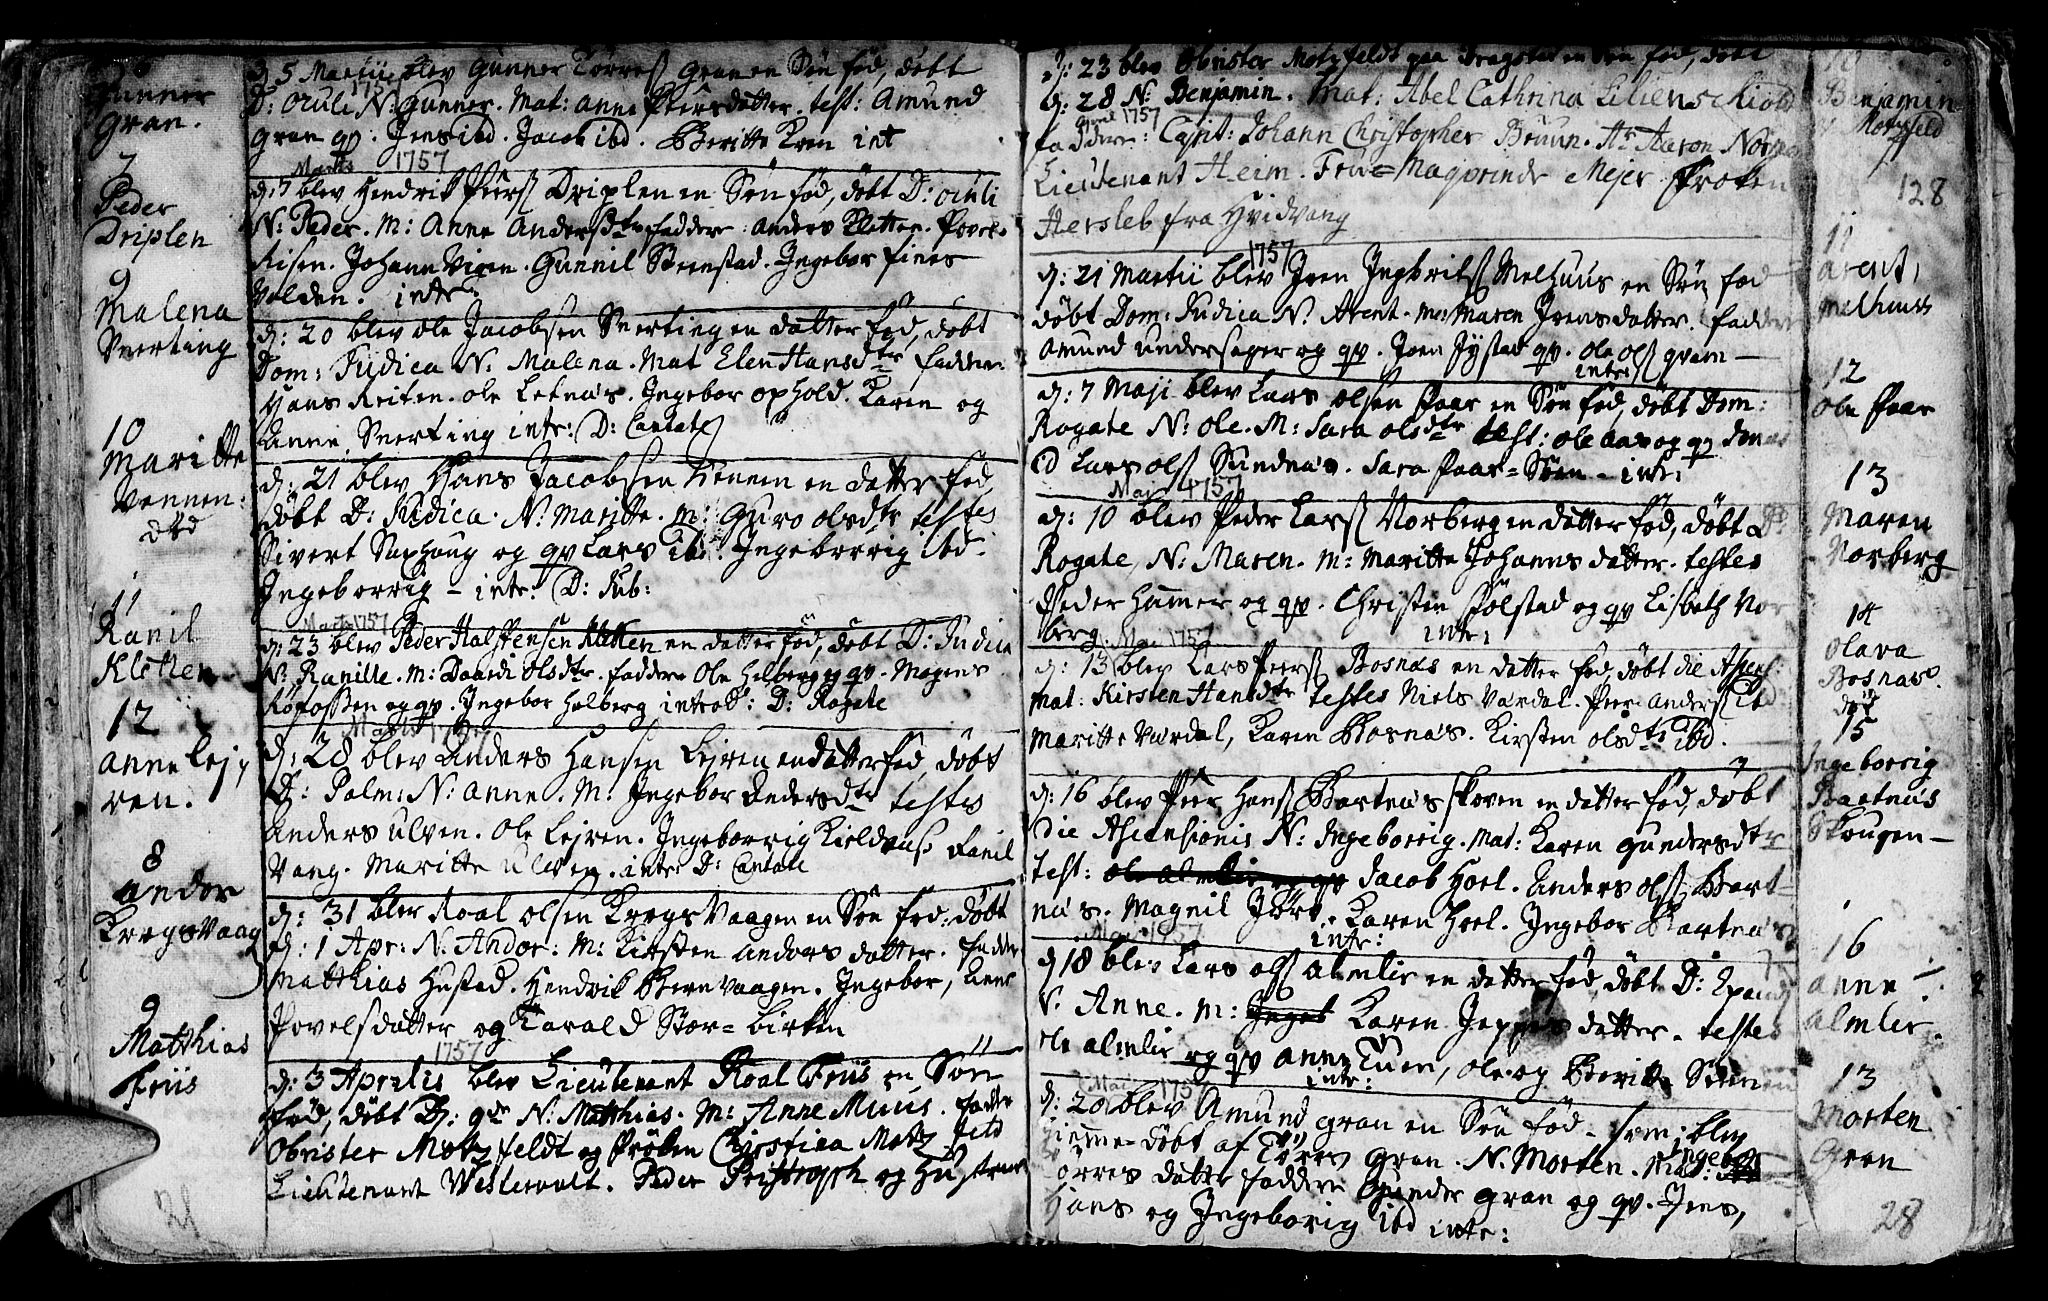 Gunner
Gran.
7
Peder
Driplen
9
Malena
Snerting
10
Maritte
Vennen:
død
11
Ranil
Kletten
12
Anne Lej,
ren.
8
Andor
KrogsVaag
9
Matthias
Friis
5 Martii blev Gunner Torres Gran en Søn fød, døbt
1757
D: Oculi N: Gunner. Mat: Anne Peersdatter. test: Amund
Gran qv. Jens ibd. Jacob ibd. Beritte Kren int
Martii 1757
d: 7 blev Hendrik Peers Driplen en Søn fød, døbt D: Oculi
N: Peder. M: Anne Andersdtr faddere Anders Kletten. Povel
Risen. Johann Vien. Gunnil Steenstad. Ingebor fines
Volden. intr:
d: 20 blev Ole Jacobsen Snerting en datter fød, døbt
Dom: Judica N: Malena. Mat Elen Hansdtr fadder
Hans Reiten. Ole Letnæs. Ingebor Ophold. Karen og
Anne Snerting intr: D: Cantate
d: 21 blev Hans Jacobsen Vennen en datter fød,
døbt D: Judica. N: Maritte. M: Guro Olsdtr testes
Sivert Saxhaug og qv Lars ibd. Ingeborrig ibd.
Ingeborrig - intr: D: Jub:
Marti 1757
d: 23 blev Peder Halstensen Kletten en datter fød, døbt D: Judica
N: Ranille. M: Daardi Olsdtr. faddere Ole Helberg og qv. Mogens
Røfossen og qv. Ingebor Holberg introd: D: Rogate
Martii 1757
d: 28 blev Anders Hansen Lejren en datter fød, døbt
D: Palm: N: Anne. M: Ingebor Andersdtr testes
Anders Ulven. Ole Lejren. Ingeborrig Kieldvas Ranil
Vang. Maritte Ulven. intr D: Cantate
d: 31 blev Roal Olsen KrogsVaagen en Søn fød: døbt
d: 1 Apr: N: Andor: M: Kirsten Andors datter. fadder
Matthias Hustad. Hendrik Bernvaagen. Ingebor, Anne
Povelsdatter og Harald Stor=birken
1757
d: 3 Aprilis blev Lieutenant Roal Friis en Søn
fød, døbt D: 9de N: Matthias. M: Anne Muus. fadder
Obrister Motzfeldt og Frøken Christina Motzfeld
Lieutenant Westerwalt. Peder og Hustrue
d: 23 blev Obrister Motzfeldt paa Dragstad en Søn fød, døbt
d: 28 N: Benjamin. Mat: Abel Cathrina Lilienschiold
April 1757
faddere: Capit: Johann Christopher Bruun. Hr Aaron
Lieutenant Heim. Frue=Magprinde Mejer. Frøken
Hersleb fra Hvidvang
1757
d: 21 Martii blev Joen Ingbrits Melhuus en Søn fød
døbt Dom: Judica N. Arent. M: Maren Jensdatter. fadder
Amund Undersager og qv. Joen Fystad qv. Ole Ols qvam-
intr
d: 7 Maji blev Lars Olsen Paar en Søn fød, døbt Dom:
Rogate N: Ole. M: Sara Olsdtr test: Ole Aas og qv
Lars Ols Sundnæs. Sara Paar=Støen - intr:
Maji 1757
d: 10 blev Peder Lars Norberg en datter fød, døbt D:
Rogate, N: Maren. M: Maritte Johanns datter. testes
Peder Hammer og qv. Christen Folstad og qv Lisbeth Nor
berg intr:
Mai 1757
d: 13 blev Lars Peers Bosnæs en datter fød, døbt die Ascens:
Mat: Kirsten Hansdtr testes Niels Vardal. Peer Anders ibd
Maritte Værdal, Karen Bosnæs. Kirsten Olsdtr ibd.
d: 16 blev Peer Hans Bartnæs skoven en datter fød, døbt
die Ascensionis N: Ingeborrig. Mat: Karen Gundersdtr
test: Ole Almlie og qv Jacob Hoel. Anders Ols Bart-
næs. Magnil Jørs. Karen Hoel. Ingebor Bartnæs
Mai 1757 intr:
d 18 blev Lars Ols Almlie en datter fød, døbt D: Exaudi
N. Anne. M: Inget Karen Jeppes datter. testes
Ole Almlie og qv Anne Tuen, Ole og Beritte Steen
intr:
Mai 1757
d: 20 blev Amund Gran en Søn fød. som blev
Hiemme-døbt af Tørres Gran. N. Morten. Mat: Ingebor
Torres datter faddere Gunder Gran og qv. Jens,
Hans og Ingeborig ibd intr:
Benjamin
Motzfeld
128
11
Arent
Melhuus
12
Ole Paar
13
Maren
Norberg
14
Olava
Bosnæs.
død
15
Ingeborrig
Bartnæs
Skougen-
16
Anne
Almlie.
13
Morten
Gran
28